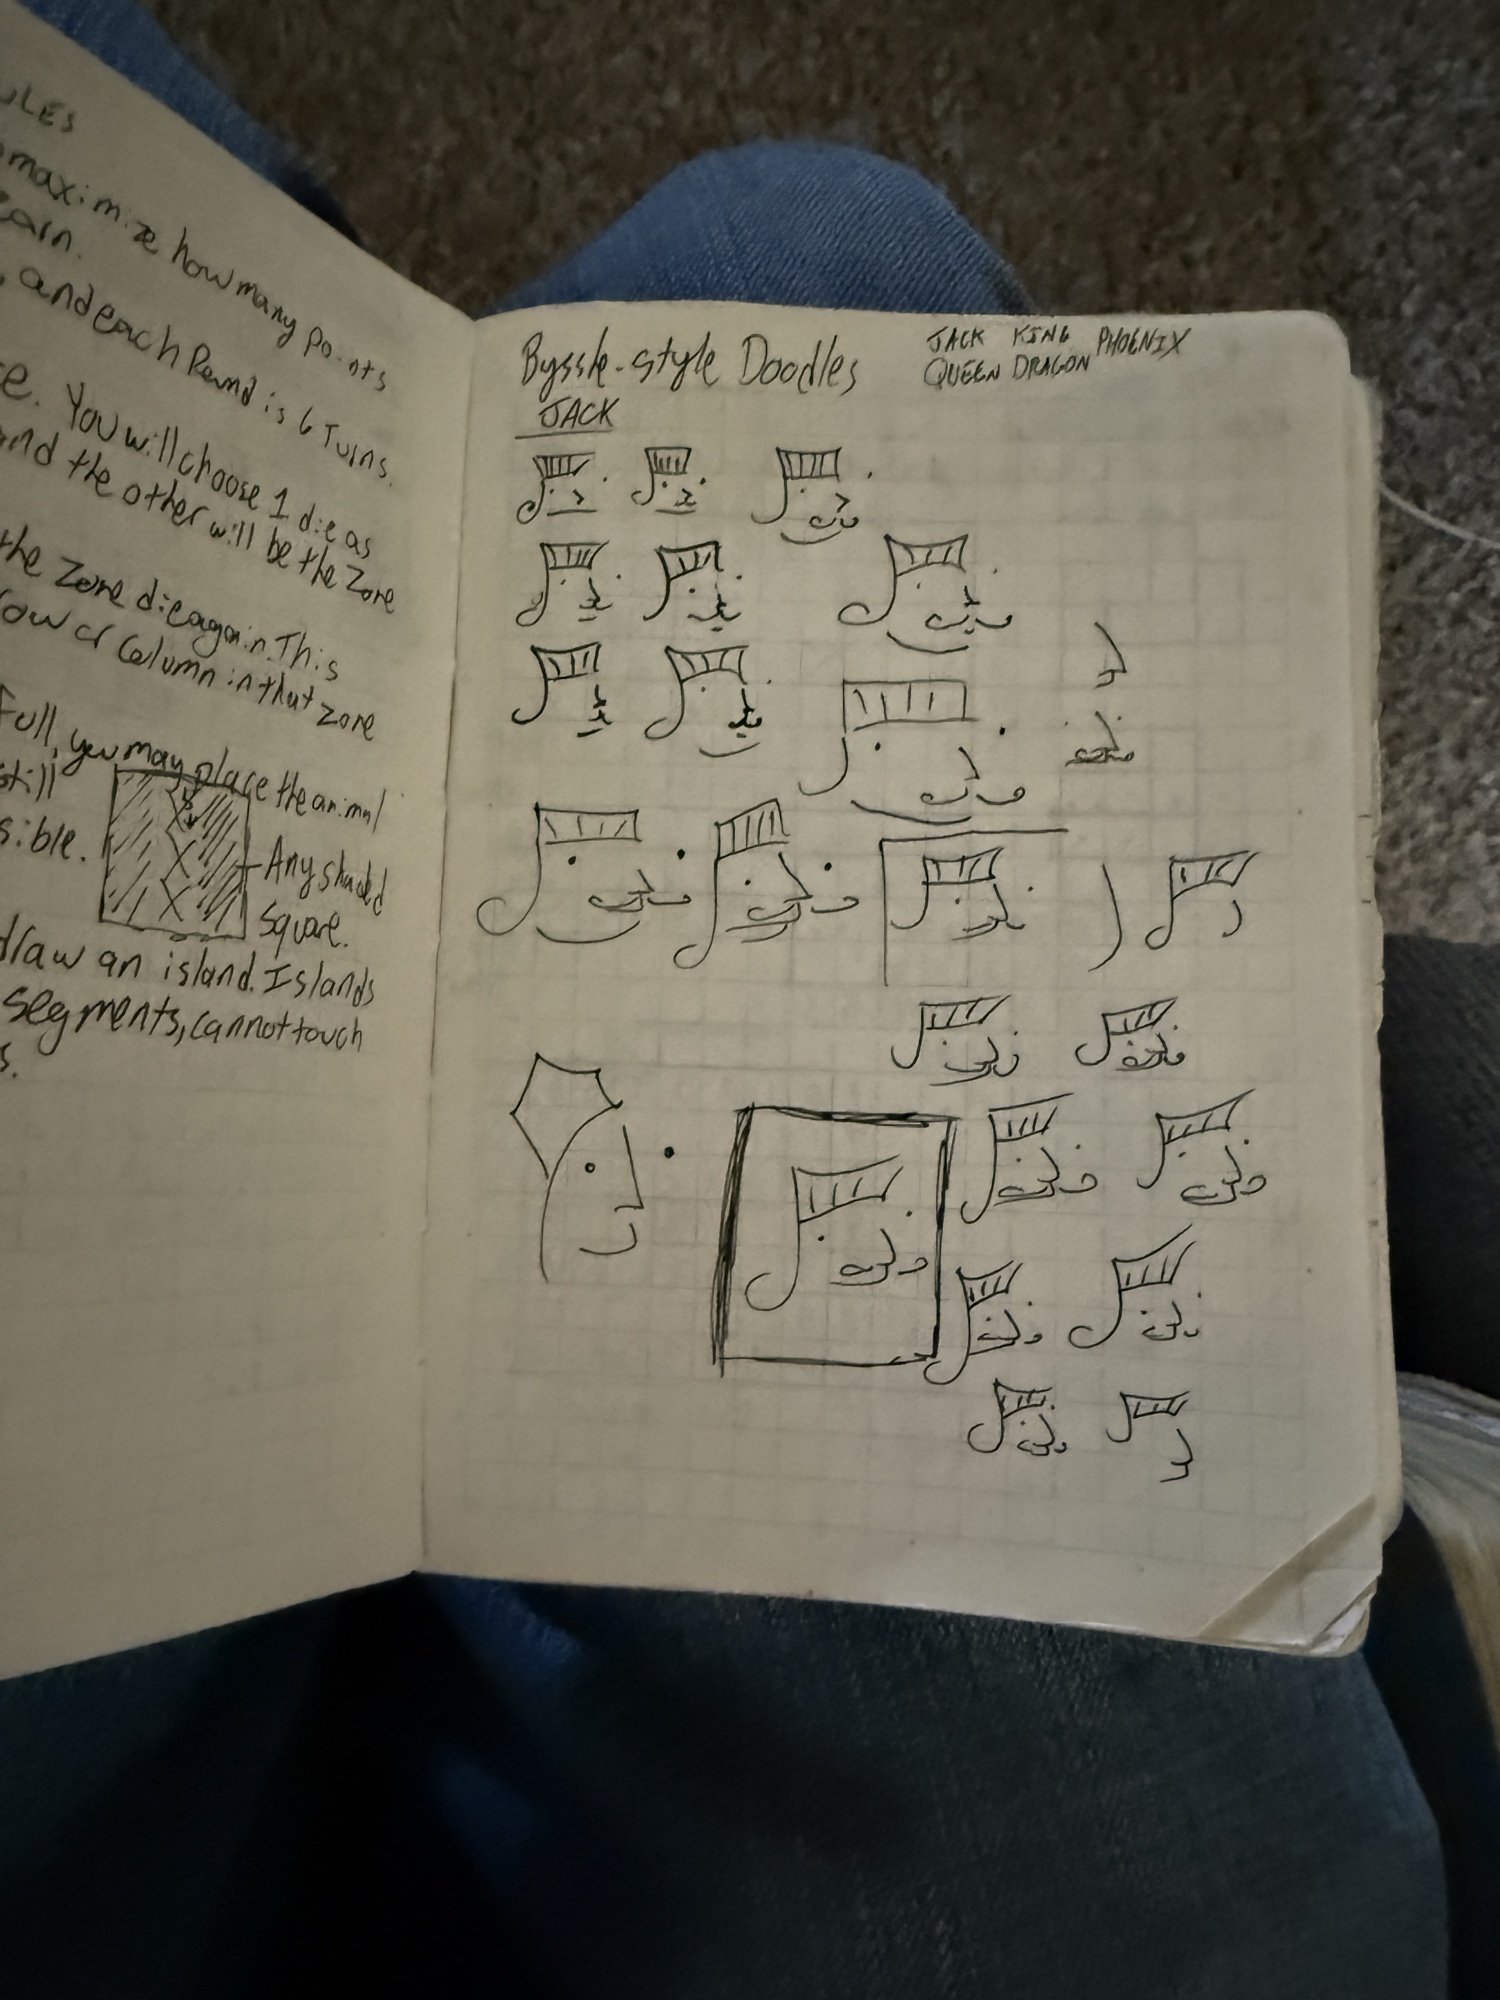 RULES
maximize how many points
earn.
, and each Round is 6 Turns.
e. You will choose 1 die as
and the other will be the Zone
the Zone die again. This
row or Column in that zone
Full, you may place the animal
still
sible.
Any shaded
Square.
draw an island. Islands
segments, cannot touch
s.
Byssle-style Doodles
JACK KING PHOENIX
QUEEN DRAGON
JACK